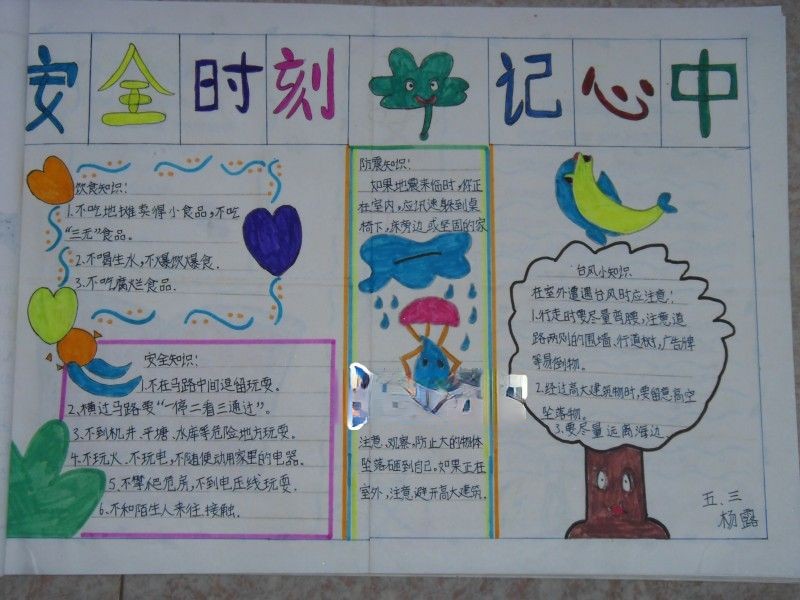 安全时刻记心中
饮食知识：
1.不吃地摊卖得小食品,不吃
“三无”食品。
2.不喝生水,不爆饮爆食.
3.不吃腐烂食品.
安全知识：
1.不在马路中间逗留玩耍.
2.横过马路要“一停二看三通过”.
3.不到机井.平塘.水库等危险地方玩耍.
4.不玩火.不玩电,不随便动用家里的电器.
5.不攀爬危房,不到电压线玩耍.
6.不和陌生人来往.接触.
防震知识：
如果地震来临时,你正
在室内,应讯速躲到桌
椅下,床旁边,或坚固的家
注意.观察.防止大的物体
坠落砸到自己。如果正在
室外,注意避开高大建筑.
台风小知识
在室外遭遇台风时应注意：
1.行走时要尽量弯腰,注意道
路两侧的围墙.行道树,广告牌
等易倒物。
2.经过高大建筑物时,要留意高空
坠落物。
3.要尽量远离海边.
五.三
杨露